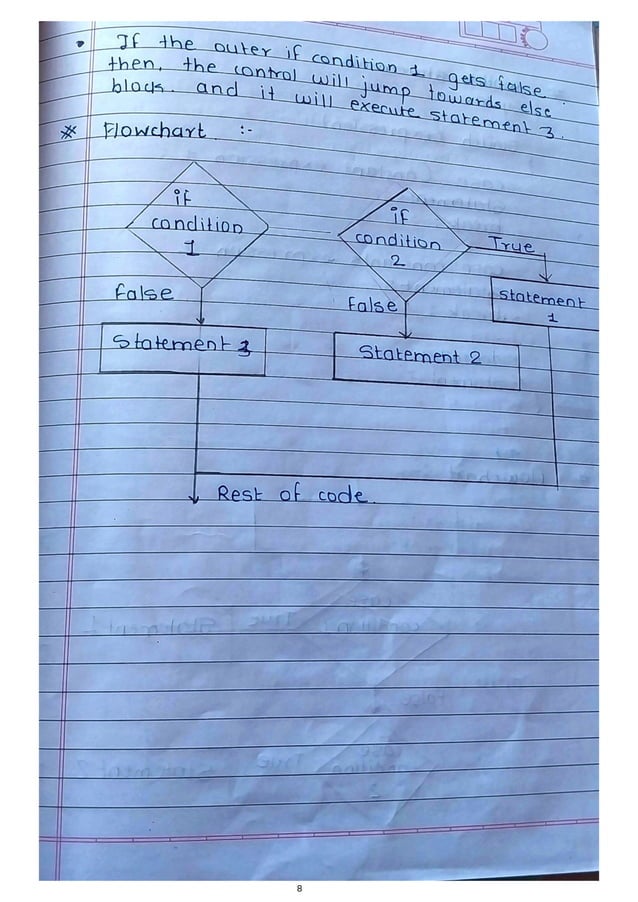 • If the outer if condition 1 gets false
then, the control will jump towards else
block. and it will execute statement 3.
※ Flowchart :-
if
condition
1
if
condition
2
True
False
False
Statement
1
Statement 3
Statement 2
Rest of code.
8